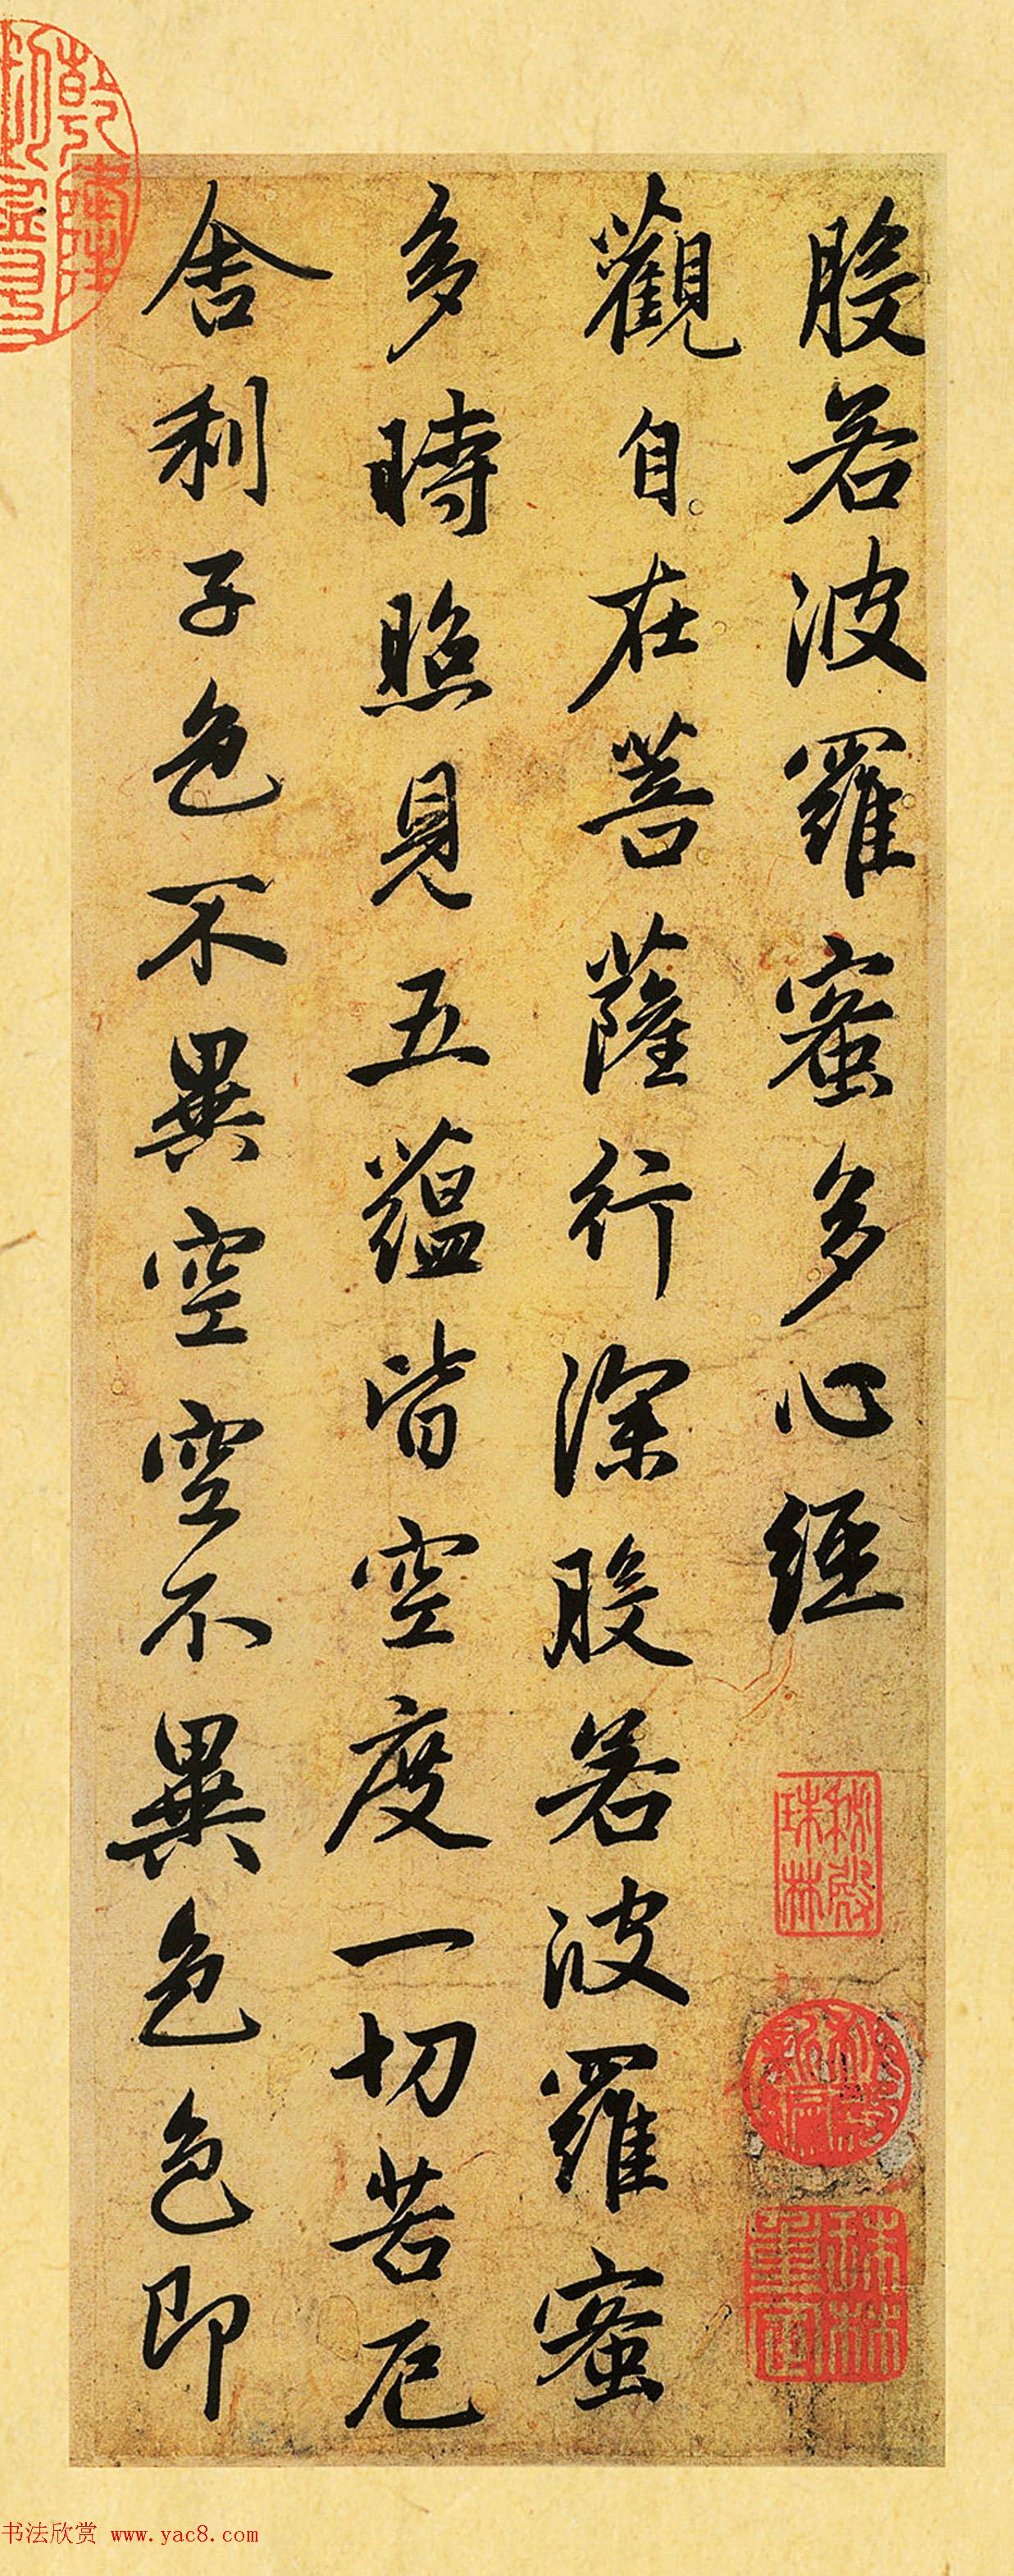 般若波羅蜜多心經
觀自在菩薩行深般若波羅蜜
多時照見五蘊皆空度一切苦厄
舍利子色不異空空不異色色即
乾隆
秘殿珠林
珠林重定
书法欣赏 www.yac8.com